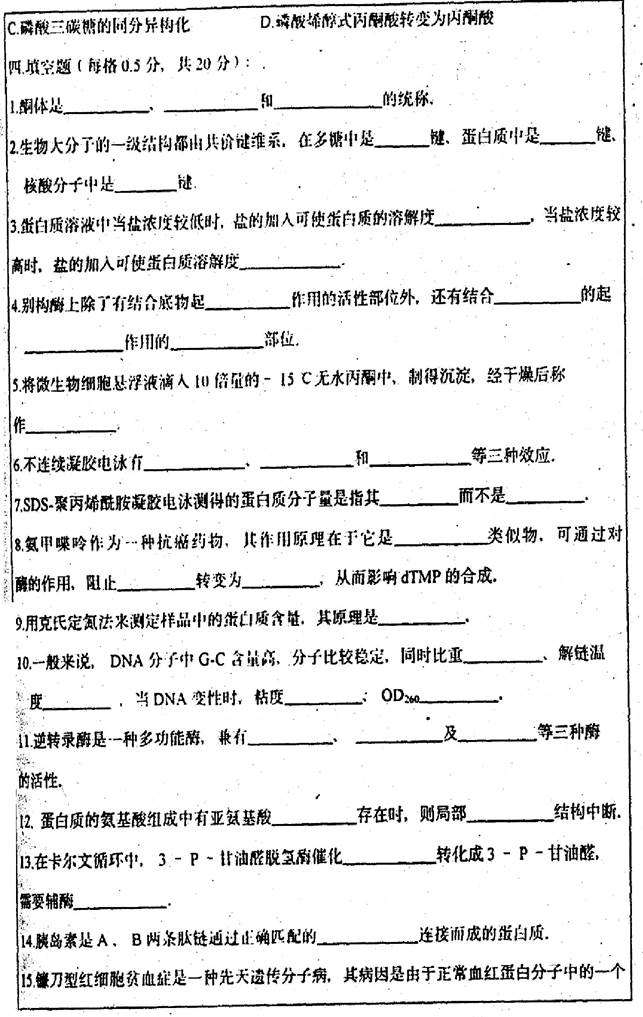 C.磷酸三碳糖的同分异构化 D.磷酸烯醇式丙酮酸转变为丙酮酸
四.填空题（每格0.5分，共20分）：
1.酮体是________、__________和__________的统称.
2.生物大分子的一级结构都由共价键维系，在多糖中是______键、蛋白质中是______键、
核酸分子中是______键.
3.蛋白质溶液中当盐浓度较低时，盐的加入可使蛋白质的溶解度__________，当盐浓度较
高时，盐的加入可使蛋白质溶解度__________.
4.别构酶上除了有结合底物起________作用的活性部位外，还有结合________的起
__________作用的_________部位.
5.将微生物细胞悬浮液滴入10倍量的-15℃无水丙酮中，制得沉淀，经干燥后称
作_________.
6.不连续凝胶电泳有__________、_________和__________等三种效应.
7.SDS-聚丙烯酰胺凝胶电泳测得的蛋白质分子量是指其________而不是________.
8.氨甲喋呤作为一种抗癌药物，其作用原理在于它是_________类似物，可通过对
酶的作用，阻止________转变为________，从而影响dTMP的合成.
9.用克氏定氮法来测定样品中的蛋白质含量，其原理是_________.
10.一般来说，DNA分子中G-C含量高、分子比较稳定，同时比重________、解链温
度_______，当DNA变性时，粘度________；OD₂₆₀________.
11.逆转录酶是一种多功能酶，兼有________、_________及________等三种酶
的活性.
12.蛋白质的氨基酸组成中有亚氨基酸________存在时，则局部________结构中断.
13.在卡尔文循环中，3-P-甘油醛脱氢酶催化_________转化成3-P-甘油醛，
需要辅酶_________.
14.胰岛素是A、B两条肽链通过正确匹配的__________连接而成的蛋白质.
15.镰刀型红细胞贫血症是一种先天遗传分子病，其病因是由于正常血红蛋白分子中的一个